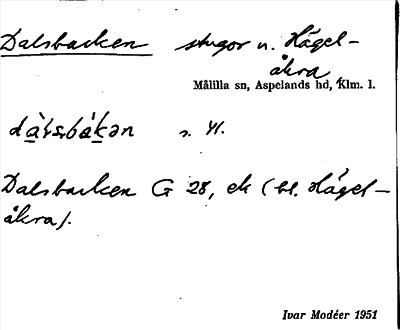 Dalsbacken stugor u. Hägel-
åkra
Målilla sn, Aspelands hd, Klm. l.
dàlsbákən s. 41.
Dalsbacken G 28, ek (bl. Hägel-
åkra).
Ivar Modéer 1951